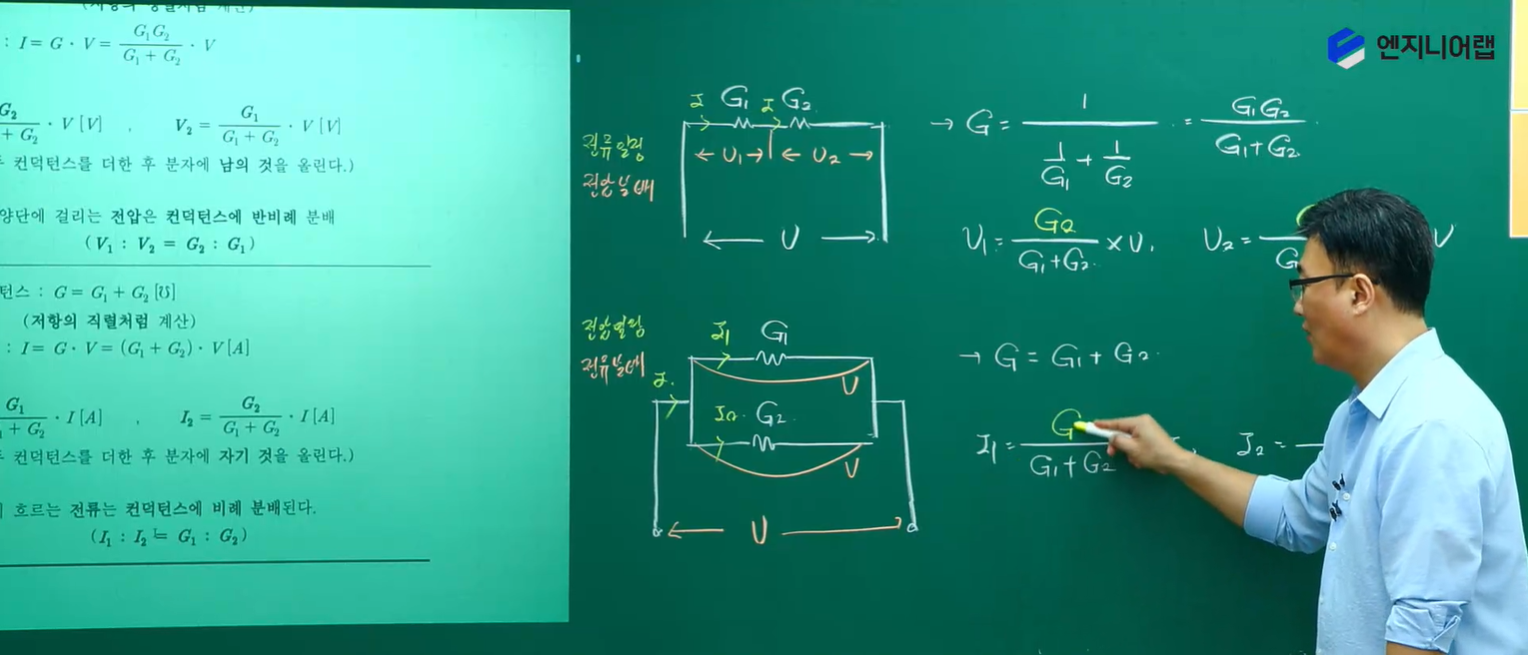 : I = G · V = G₁G₂ / (G₁ + G₂) · V
G₂ / + G₂ · V [V] , V₂ = G₁ / (G₁ + G₂) · V [V]
컨덕턴스를 더한 후 분자에 남의 것을 올린다.)
양단에 걸리는 전압은 컨덕턴스에 반비례 분배
(V₁ : V₂ = G₂ : G₁)
턴스 : G = G₁ + G₂ [℧]
(저항의 직렬처럼 계산)
: I = G · V = (G₁ + G₂) · V [A]
G₁ / + G₂ · I [A] , I₂ = G₂ / (G₁ + G₂) · I [A]
컨덕턴스를 더한 후 분자에 자기 것을 올린다.)
흐르는 전류는 컨덕턴스에 비례 분배된다.
(I₁ : I₂ = G₁ : G₂)
엔지니어랩
I G₁ I G₂
전류일정
전압분배
← V₁ → ← V₂ →
← V →
→ G = 1 / (1/G₁ + 1/G₂) = G₁G₂ / (G₁+G₂)
V₁ = G₂ / (G₁+G₂) × V, V₂ = V
전압일정
전류분배
I₁ G₁
V
I
I₂ G₂
V
← V →
→ G = G₁ + G₂
I₁ = G / (G₁+G₂) I₂ =